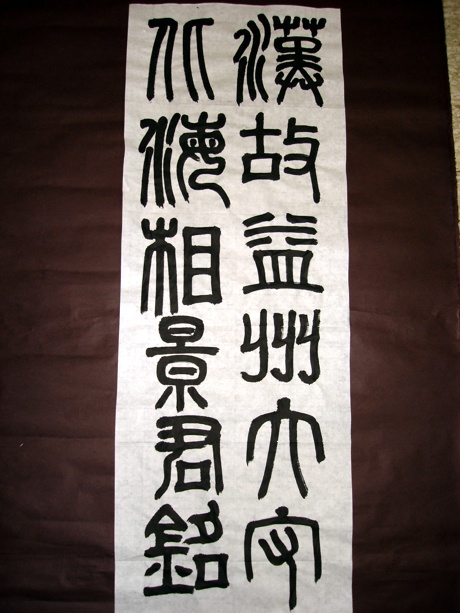 漢故益州大守
北海相景君銘